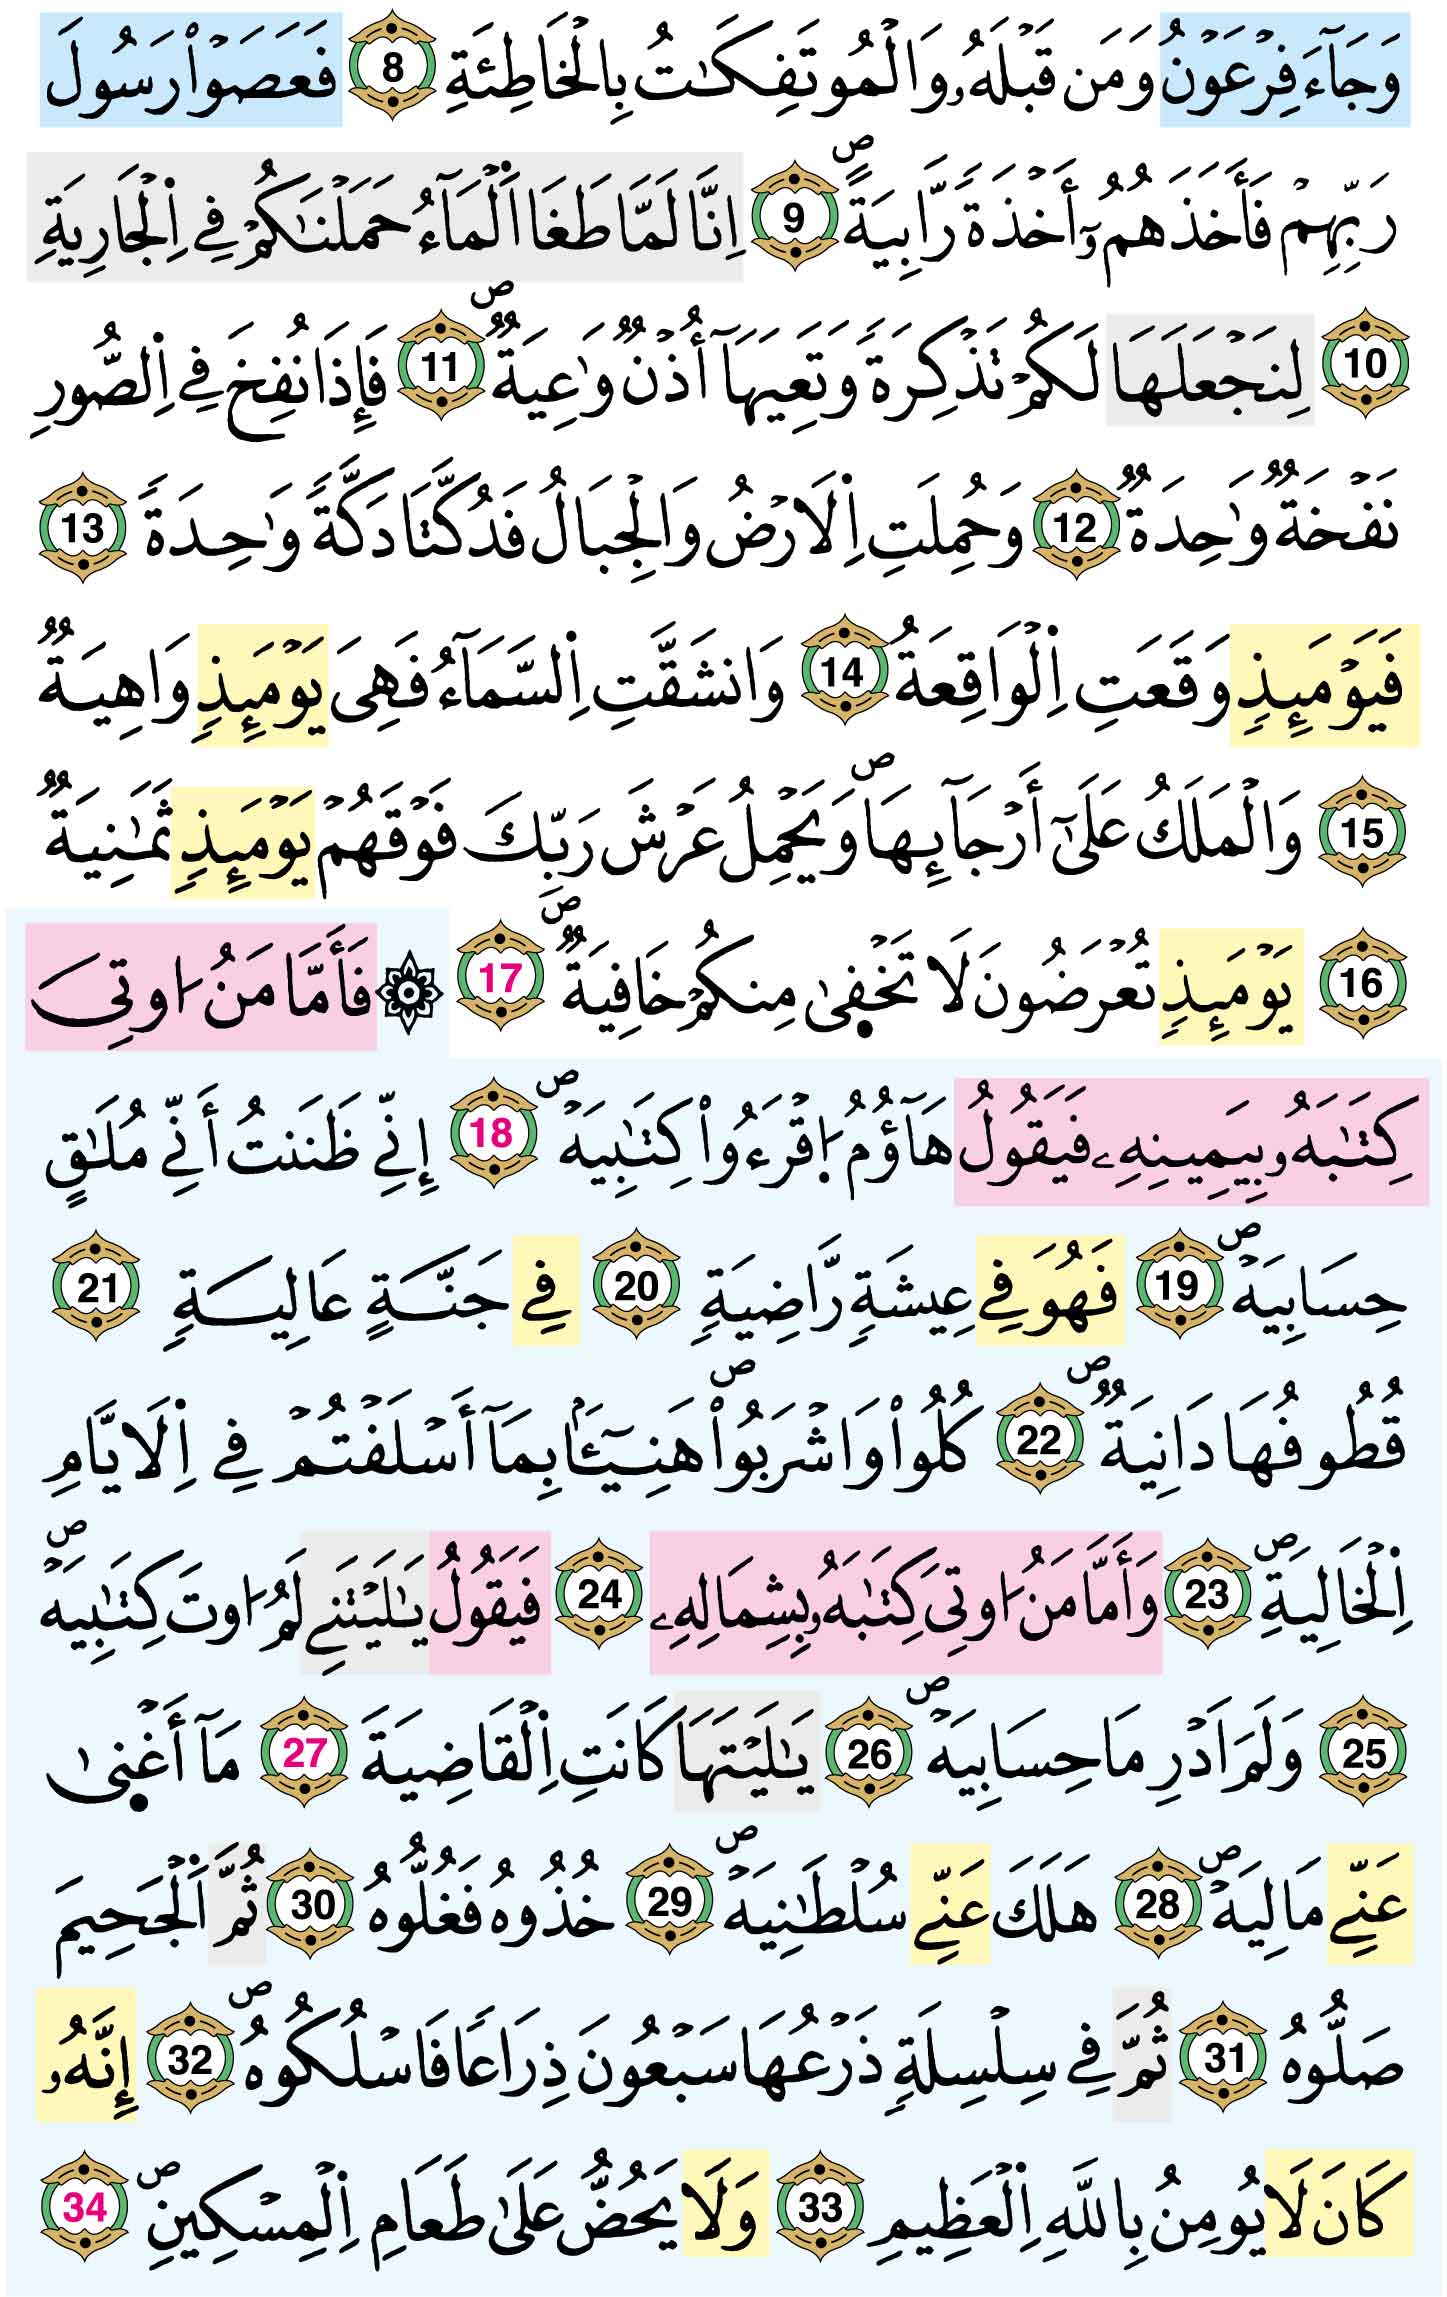 وَجَآءَ فِرْعَوْنُ وَمَن قَبْلَهُۥ وَالْمُوتَفِكَٰتُ بِالْخَاطِئَةِ 8 فَعَصَوْاْ رَسُولَ
رَبِّهِمْ فَأَخَذَهُمُۥٓ أَخْذَةٗ رَّابِيَةًۖ 9 اِنَّا لَمَّا طَغَا اَ۬لْمَآءُ حَمَلْنَٰكُمْ فِے اِ۬لْجَارِيَةِ
10 لِنَجْعَلَهَا لَكُمْ تَذْكِرَةٗ وَتَعِيَهَآ أُذْنٞ وَٰعِيَةٞۖ 11 فَإِذَا نُفِخَ فِے اِ۬لصُّورِ
نَفْخَةٞ وَٰحِدَةٞ 12 وَحُمِلَتِ اِ۬لَارْضُ وَالْجِبَالُ فَدُكَّتَا دَكَّةٗ وَٰحِدَةٗ 13
فَيَوْمَئِذٖ وَقَعَتِ اِ۬لْوَاقِعَةُ 14 وَانشَقَّتِ اِ۬لسَّمَآءُ فَهِىَ يَوْمَئِذٖ وَاهِيَةٞ
15 وَالْمَلَكُ عَلَىٰٓ أَرْجَآئِهَاۖ وَيَحْمِلُ عَرْشَ رَبِّكَ فَوْقَهُمْ يَوْمَئِذٖ ثَمَٰنِيَةٞ
16 يَوْمَئِذٖ تُعْرَضُونَ لَا تَخْف۪ىٰ مِنكُمْ خَافِيَةٞۖ 17 ۞ فَأَمَّا مَنُ ا۟وتِىَ
كِتَٰبَهُۥ بِيَمِينِهِۦ فَيَقُولُ هَآؤُمُ اُ۪قْرَءُواْ كِتَٰبِيَهْۖ 18 إِنِّے ظَنَنتُ أَنِّے مُلَٰقٍ
حِسَابِيَهْۖ 19 فَهُوَ فِے عِيشَةٖ رَّاضِيَةٖ 20 فِے جَنَّةٍ عَالِيَةٖ 21
قُطُوفُهَا دَانِيَةٞۖ 22 كُلُواْ وَاشْرَبُواْۖ هَنِيٓـٔاَۢ بِمَآ أَسْلَفْتُمْ فِے اِ۬لَايَّامِ
اِ۬لْخَالِيَةِۖ 23 وَأَمَّا مَنُ ا۟وتِىَ كِتَٰبَهُۥ بِشِمَالِهِۦ 24 فَيَقُولُ يَٰلَيْتَنِے لَمُ ا۟وتَ كِتَٰبِيَهْۖ
25 وَلَمَ اَدْرِ مَا حِسَابِيَهْۖ 26 يَٰلَيْتَهَا كَانَتِ اِ۬لْقَاضِيَةَ 27 مَآ أَغْن۪ىٰ
عَنِّے مَالِيَهْۖ 28 هَلَكَ عَنِّے سُلْطَٰنِيَهْۖ 29 خُذُوهُ فَغُلُّوهُ 30 ثُمَّ اَ۬لْجَحِيمَ
صَلُّوهُ 31 ثُمَّ فِے سِلْسِلَةٖ ذَرْعُهَا سَبْعُونَ ذِرَاعاٗ فَاسْلُكُوهُۖ 32 إِنَّهُۥ
كَانَ لَا يُومِنُ بِاللَّهِ اِ۬لْعَظِيمِ 33 وَلَا يَحُضُّ عَلَىٰ طَعَامِ اِ۬لْمِسْكِينِۖ 34